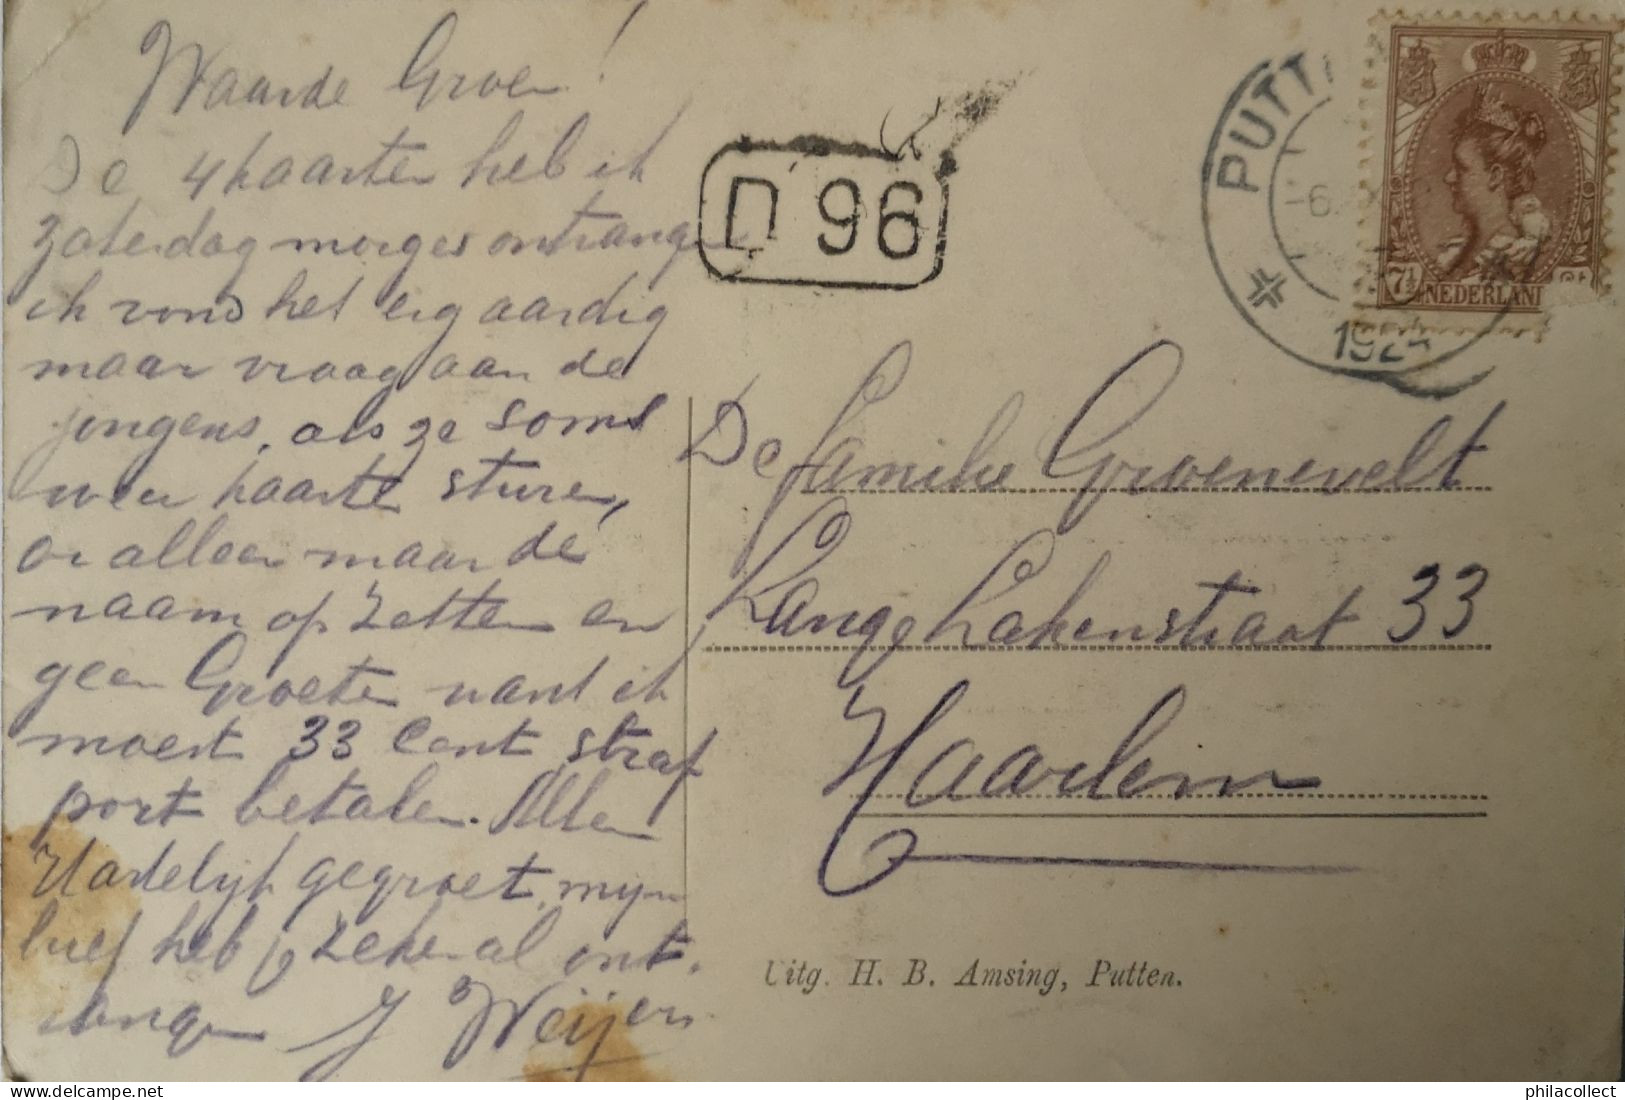 Waarde Groen!
De 4 kaarten heb ik
zaterdag morges ontvange
ik vond het erg aardig
maar vraag aan de
jongens, als ze soms
weer kaarte sture,
or alleen maar de
naam op zetten en
geen Groeten want ik
moest 33 Cent straf
port betalen. Allen
Hartelijk gegroet, mijn
brief heb je zeker al ont-
vange J Weijers
D 96
PUTTE
1924
7½
NEDERLAND
De familie Groenevelt
Lange Lakenstraat 33
Haarlem
Uitg. H. B. Amsing, Putten.
philacollect